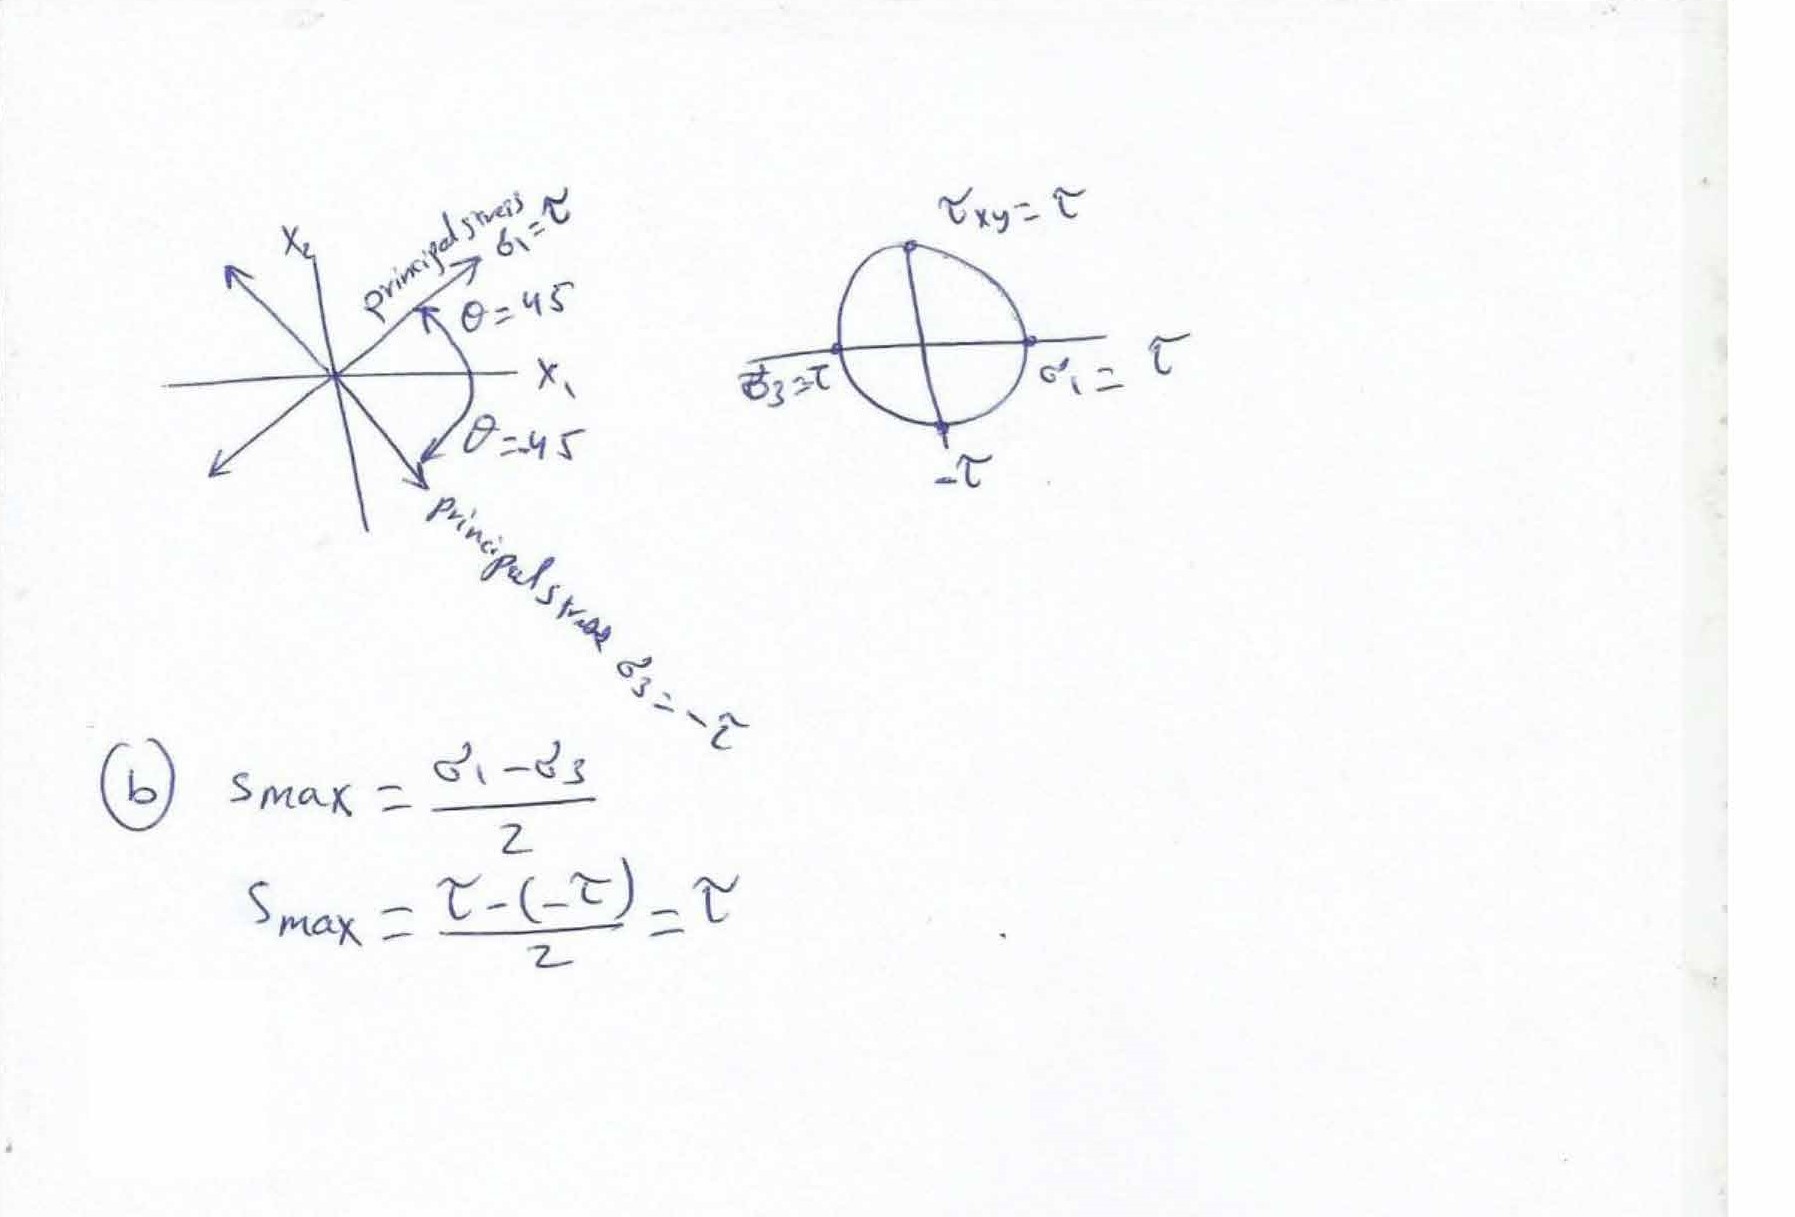 principal stress
σ₁ = τ
x₂
θ = 45
x₁
θ = -45
principal stress σ₃ = -τ
τxy = τ
σ₃ = τ
σ₁ = τ
-τ
(b) Smax = (σ₁ - σ₃) / 2
Smax = (τ - (-τ)) / 2 = τ